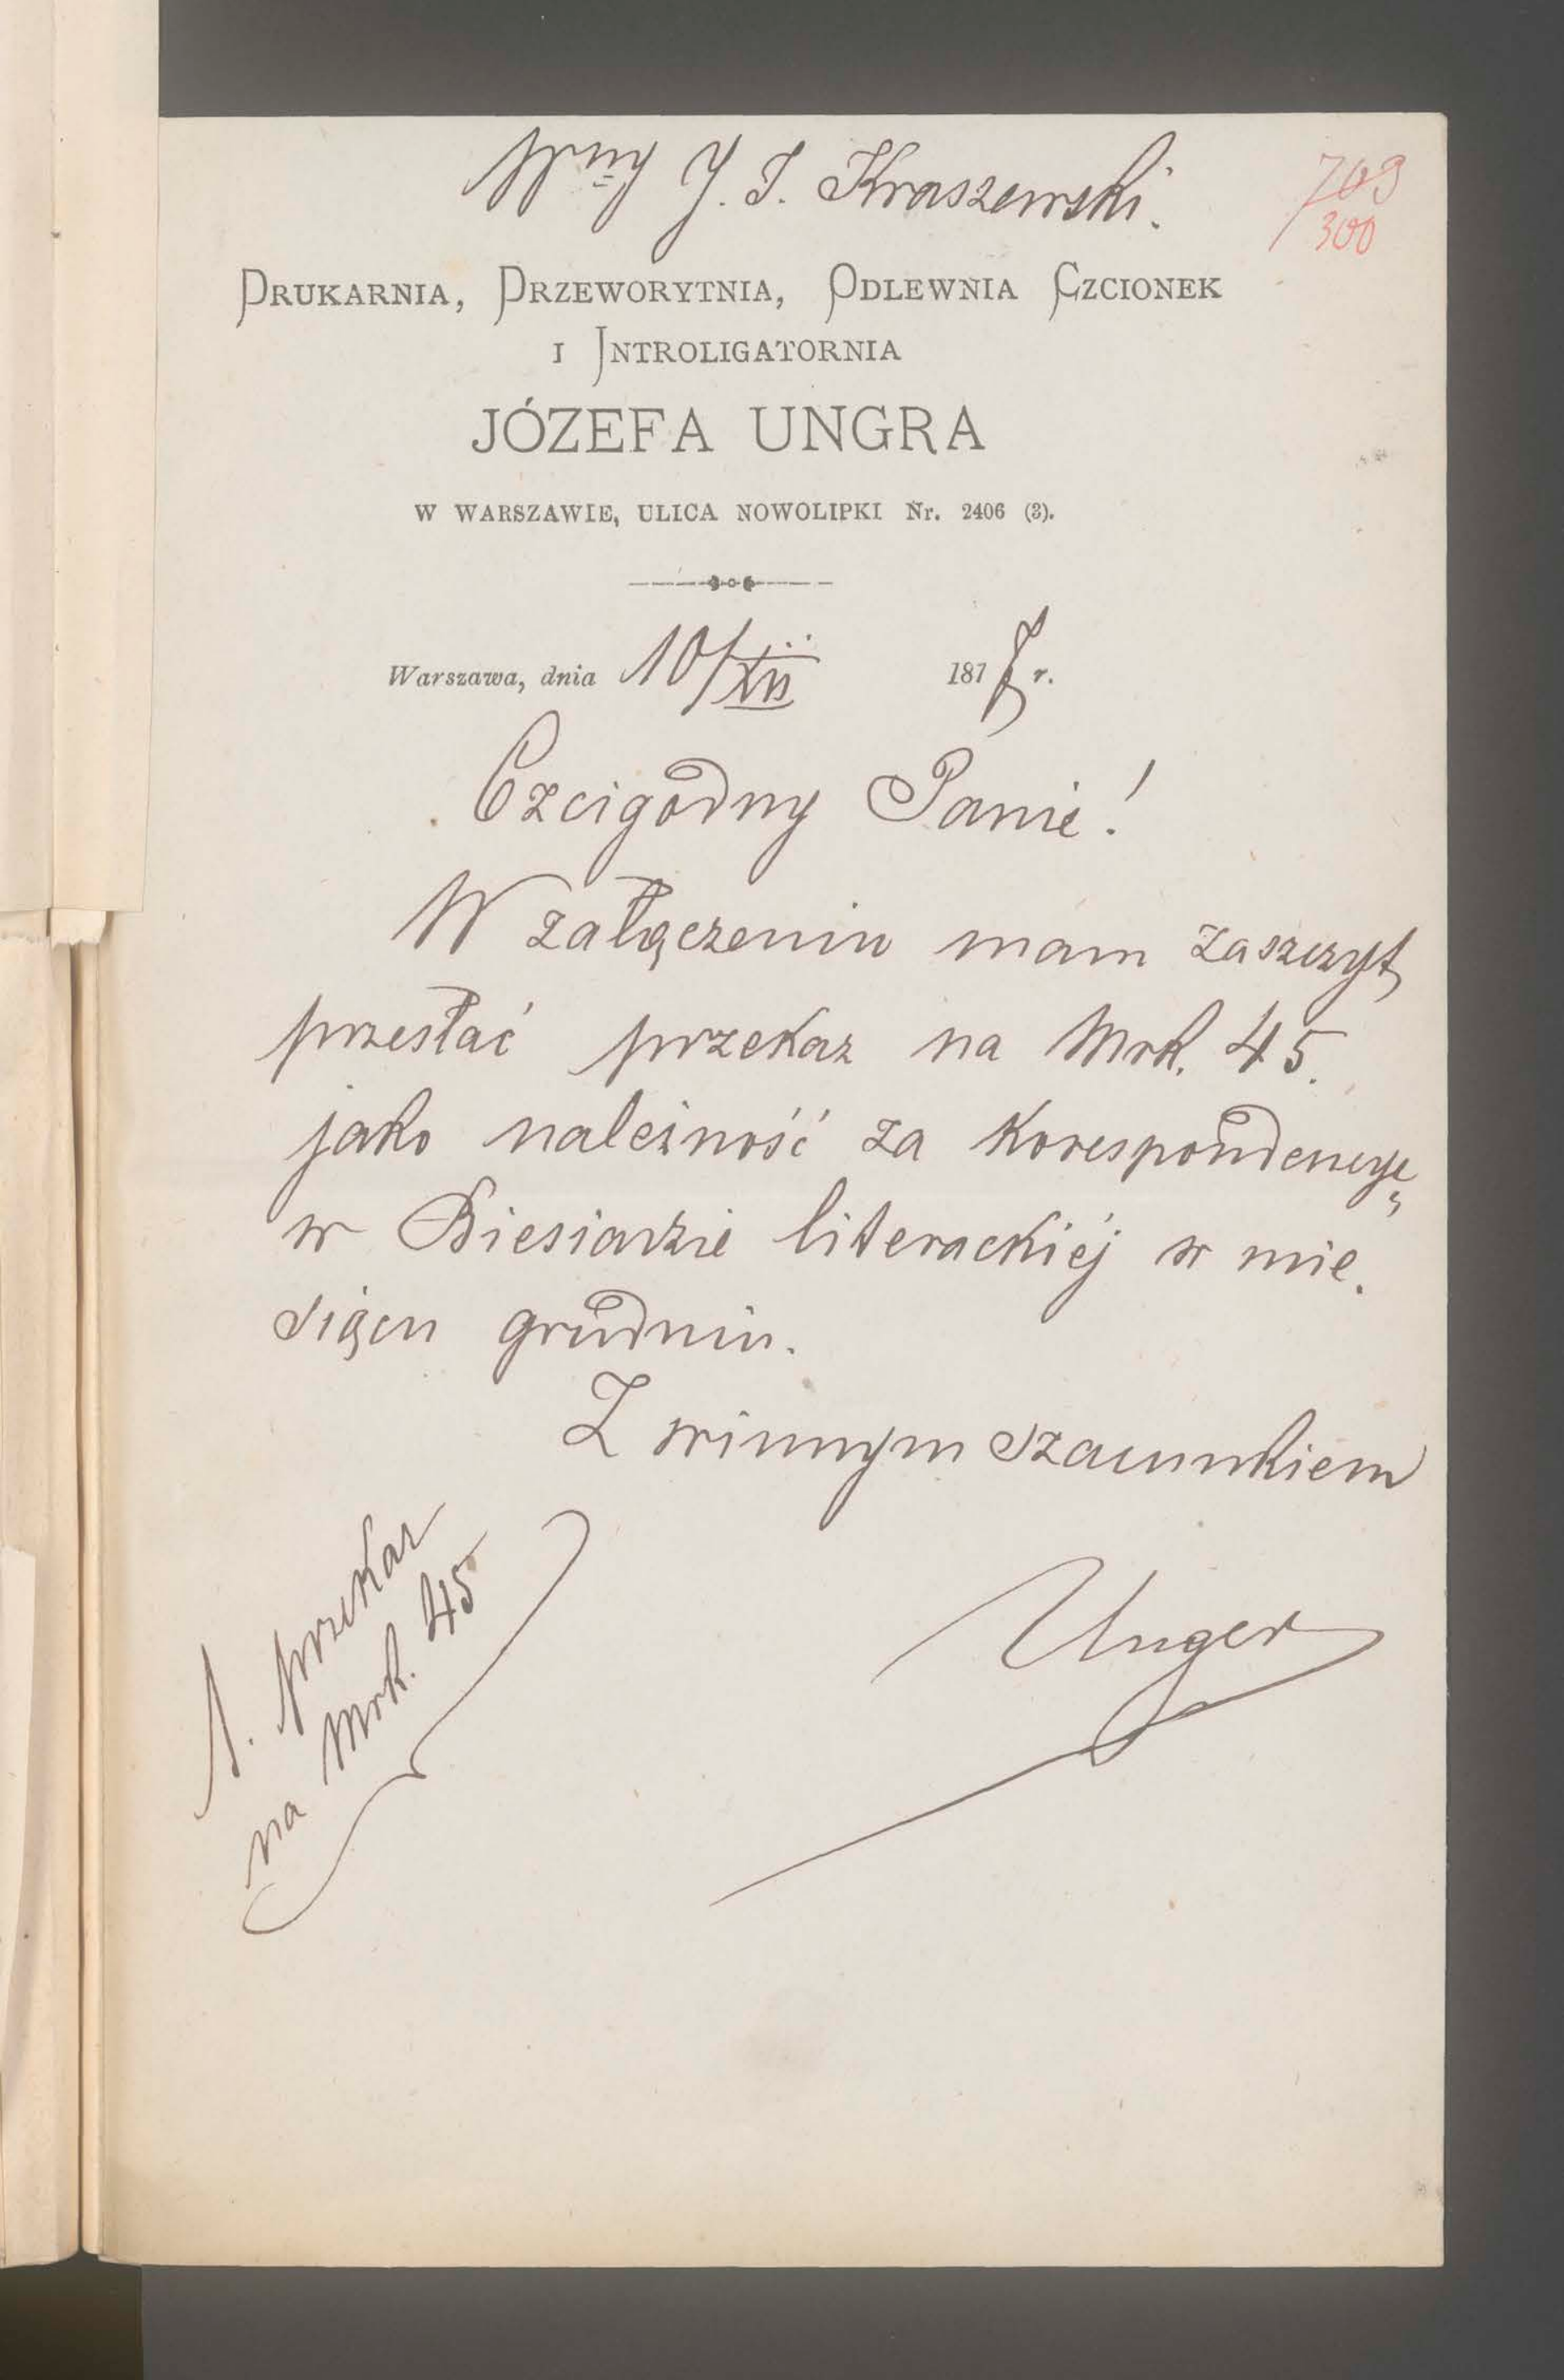 Wny J. I. Kraszewski.
709
300
DRUKARNIA, PRZEWORYTNIA, ODLEWNIA CZCIONEK
I INTROLIGATORNIA
JÓZEFA UNGRA
W WARSZAWIE, ULICA NOWOLIPKI Nr. 2406 (3).
Warszawa, dnia 10/XII 187 r.
Czcigodny Panie!
W załączeniu mam zaszczyt
przesłać przekaz na Mrk. 45.
jako należność za korespondencyę
w Biesiadzie literackiéj w mie-
siącu grudniu.
Z winnym szacunkiem
Unger
1. przekaz
na Mrk. 45